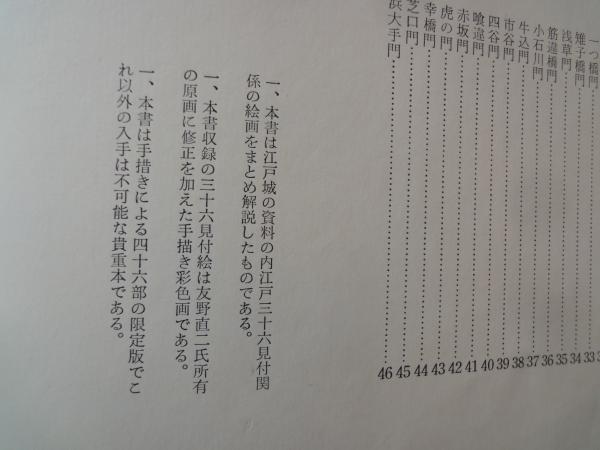 一つ橋門
雉子橋門……33
浅草門……34
筋違橋門……35
小石川門……36
牛込門……37
市谷門……38
四谷門……39
喰違門……40
赤坂門……41
虎の門……42
幸橋門……43
芝口門……44
浜大手門……46
一、本書は江戸城の資料の内江戸三十六見付関
係の絵画をまとめ解説したものである。
一、本書収録の三十六見付絵は友野直二氏所有
の原画に修正を加えた手描き彩色画である。
一、本書は手描きによる四十六部の限定版でこ
れ以外の入手は不可能な貴重本である。